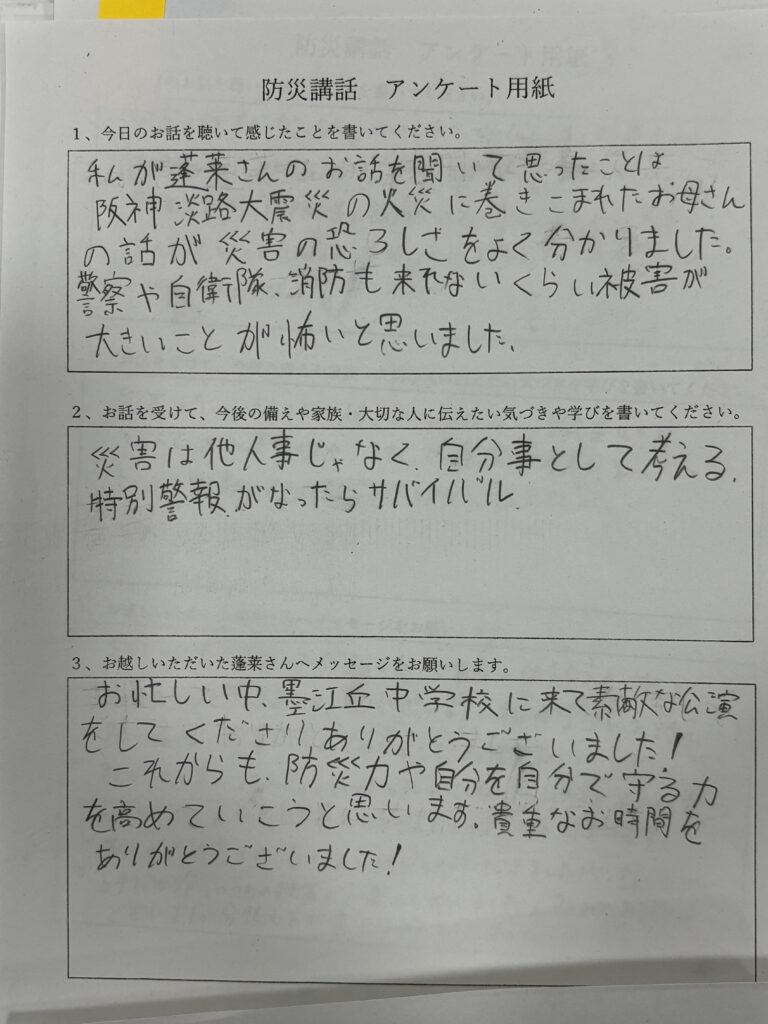 防災講話　アンケート用紙
１、今日のお話を聴いて感じたことを書いてください。
私が蓬莱さんのお話を聞いて思ったことは
阪神淡路大震災の火災に巻きこまれたお母さん
の話が災害の恐ろしさをよく分かりました。
警察や自衛隊、消防も来れないくらい被害が
大きいことが怖いと思いました。
２、お話を受けて、今後の備えや家族・大切な人に伝えたい気づきや学びを書いてください。
災害は他人事じゃなく、自分事として考える。
特別警報がなったらサバイバル。
３、お越しいただいた蓬莱さんへメッセージをお願いします。
お忙しい中、墨江丘中学校に来て素敵な公演
をしてくださりありがとうございました！
これからも、防災力や自分を自分で守る力
を高めていこうと思います。貴重なお時間を
ありがとうございました！